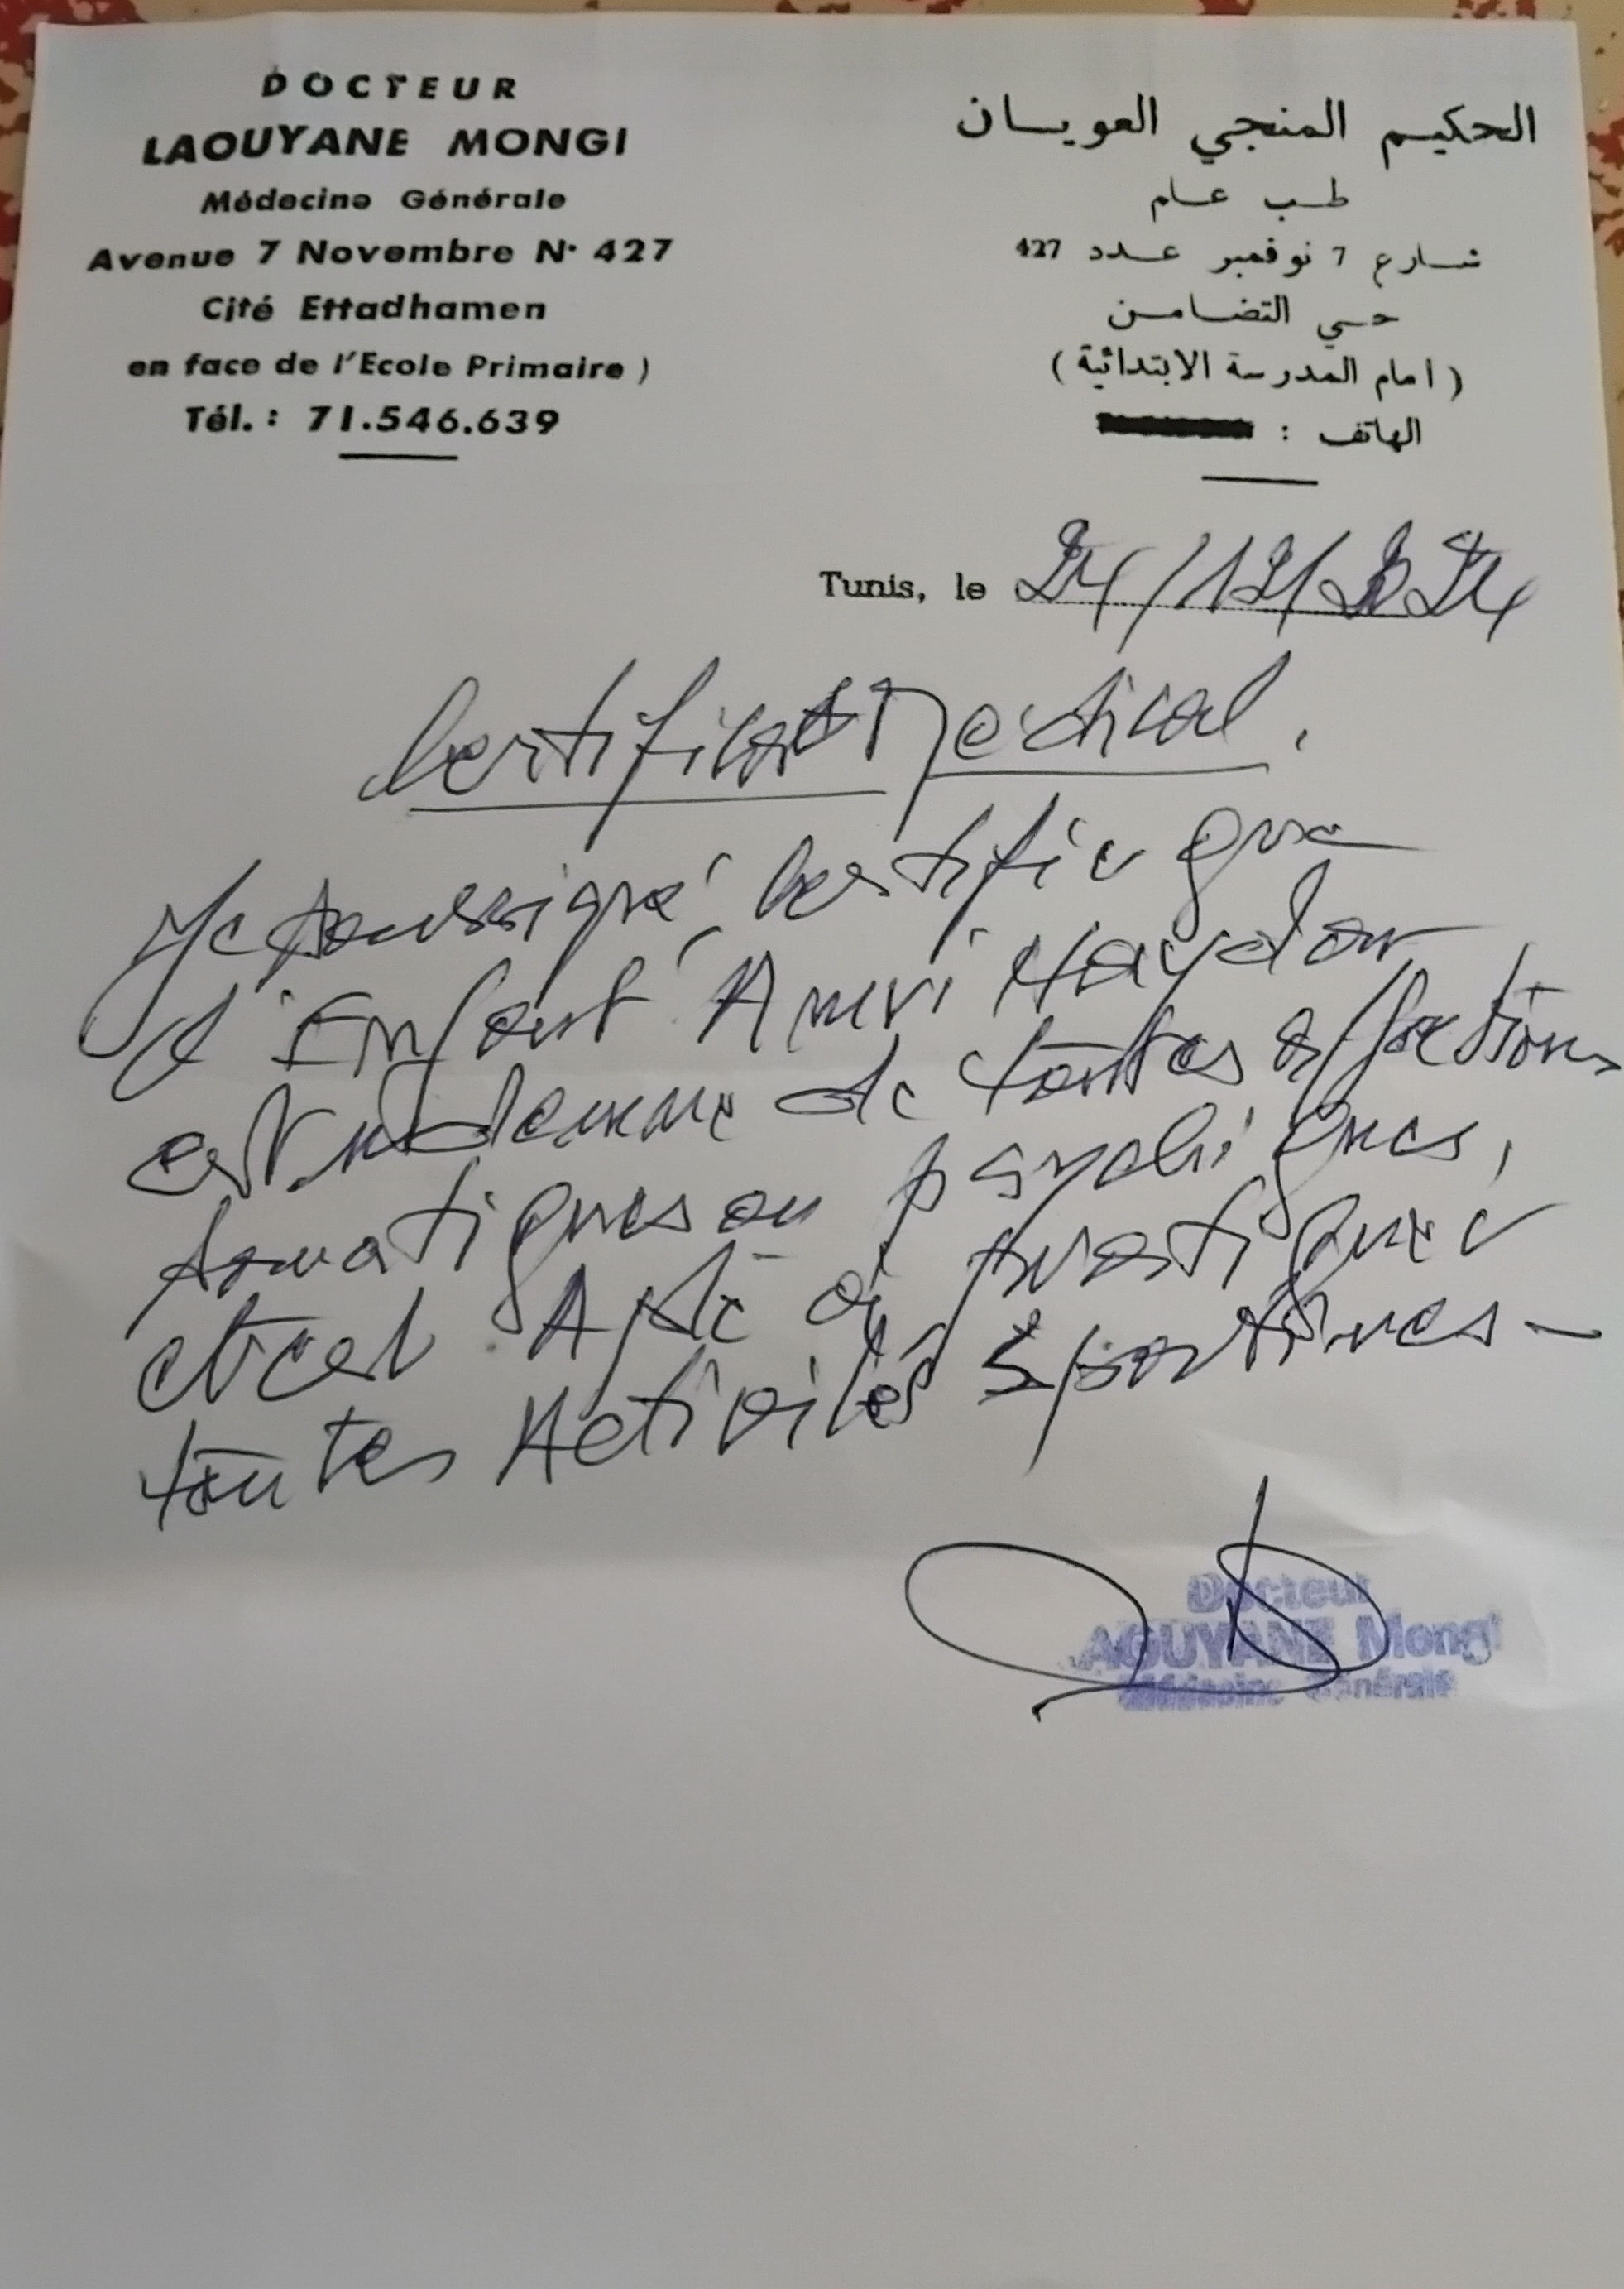 DOCTEUR
LAOUYANE MONGI
Médecine Générale
Avenue 7 Novembre N° 427
Cité Ettadhamen
en face de l'Ecole Primaire )
Tél. : 71.546.639
الحكيم المنجي العويان
طب عام
شارع 7 نوفمبر عدد 427
حي التضامن
( امام المدرسة الابتدائية )
الهاتف :
Tunis, le 24/12/2024
Certificat Medical.
Je soussigné, certifie que
l'Enfant Amri Haydar
est indemne de toutes affections
somatiques ou psychiques,
et est Apte à pratiquer
toutes Activités Sportives-
Docteur
AOUYANE Mongi
Médecine Générale